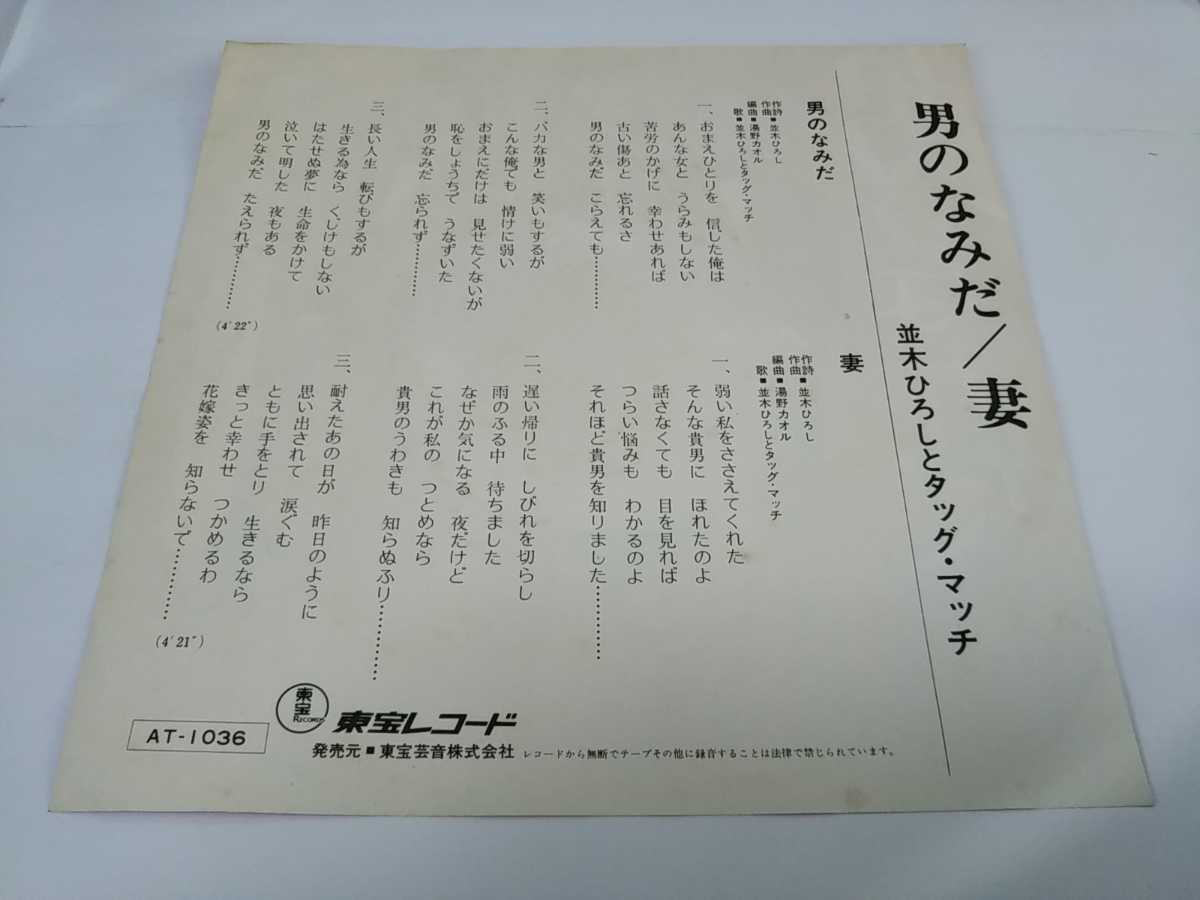 男のなみだ／妻
並木ひろしとタッグ・マッチ
男のなみだ
作詩 作曲■並木ひろし
編曲■湯野カオル
歌■並木ひろしとタッグ・マッチ
一、おまえひとりを 信した俺は
あんな女と うらみもしない
苦労のかげに 幸わせあれば
古い傷あと 忘れるさ
男のなみだ こらえても………
二、バカな男と 笑いもするが
こんな俺でも 情けに弱い
おまえにだけは 見せたくないが
恥をしょうちで うなずいた
男のなみだ 忘られず………
三、長い人生 転びもするが
生きる為なら くじけもしない
はたせぬ夢に 生命をかけて
泣いて明した 夜もある
男のなみだ たえられず………
(4′22″)
妻
作詩 作曲■並木ひろし
編曲■湯野カオル
歌■並木ひろしとタッグ・マッチ
一、弱い私をささえてくれた
そんな貴男に ほれたのよ
話さなくても 目を見れば
つらい悩みも わかるのよ
それほど貴男を知りました………
二、遅い帰りに しびれを切らし
雨のふる中 待ちました
なぜか気になる 夜だけど
これが私の つとめなら
貴男のうわきも 知らぬふり………
三、耐えたあの日が 昨日のように
思い出されて 涙ぐむ
ともに手をとり 生きるなら
きっと幸わせ つかめるわ
花嫁姿を 知らないで………
(4′21″)
AT-1036
東宝 RECORDS
東宝レコード
発売元■東宝芸音株式会社 レコードから無断でテープその他に録音することは法律で禁じられています。